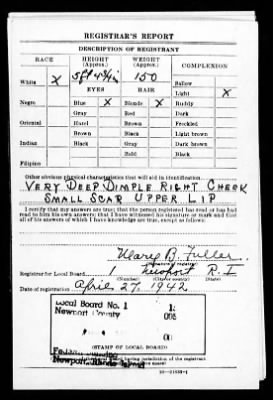 REGISTRAR'S REPORT
DESCRIPTION OF REGISTRANT
RACE HEIGHT (Approx.) WEIGHT (Approx.) COMPLEXION
White X 5 ft 4 3/4 in 150 Sallow
EYES HAIR Light X
Negro Blue X Blonde X Ruddy
Gray Red Dark
Oriental Hazel Brown Freckled
Brown Black Light brown
Indian Black Gray Dark brown
Bald Black
Filipino
Other obvious physical characteristics that will aid in identification
VERY DEEP DIMPLE RIGHT CHEEK
SMALL SCAR UPPER LIP
I certify that my answers are true; that the person registered has read or has had
read to him his own answers; that I have witnessed his signature or mark and that
all of his answers of which I have knowledge are true, except as follows:
Mary B. Fuller
Registrar for Local Board 1 Newport R. I
(Number) (City or county) (State)
Date of registration April 27, 1942
Local Board No. 1
Newport County
Newport, Rhode Island
(STAMP OF LOCAL BOARD)